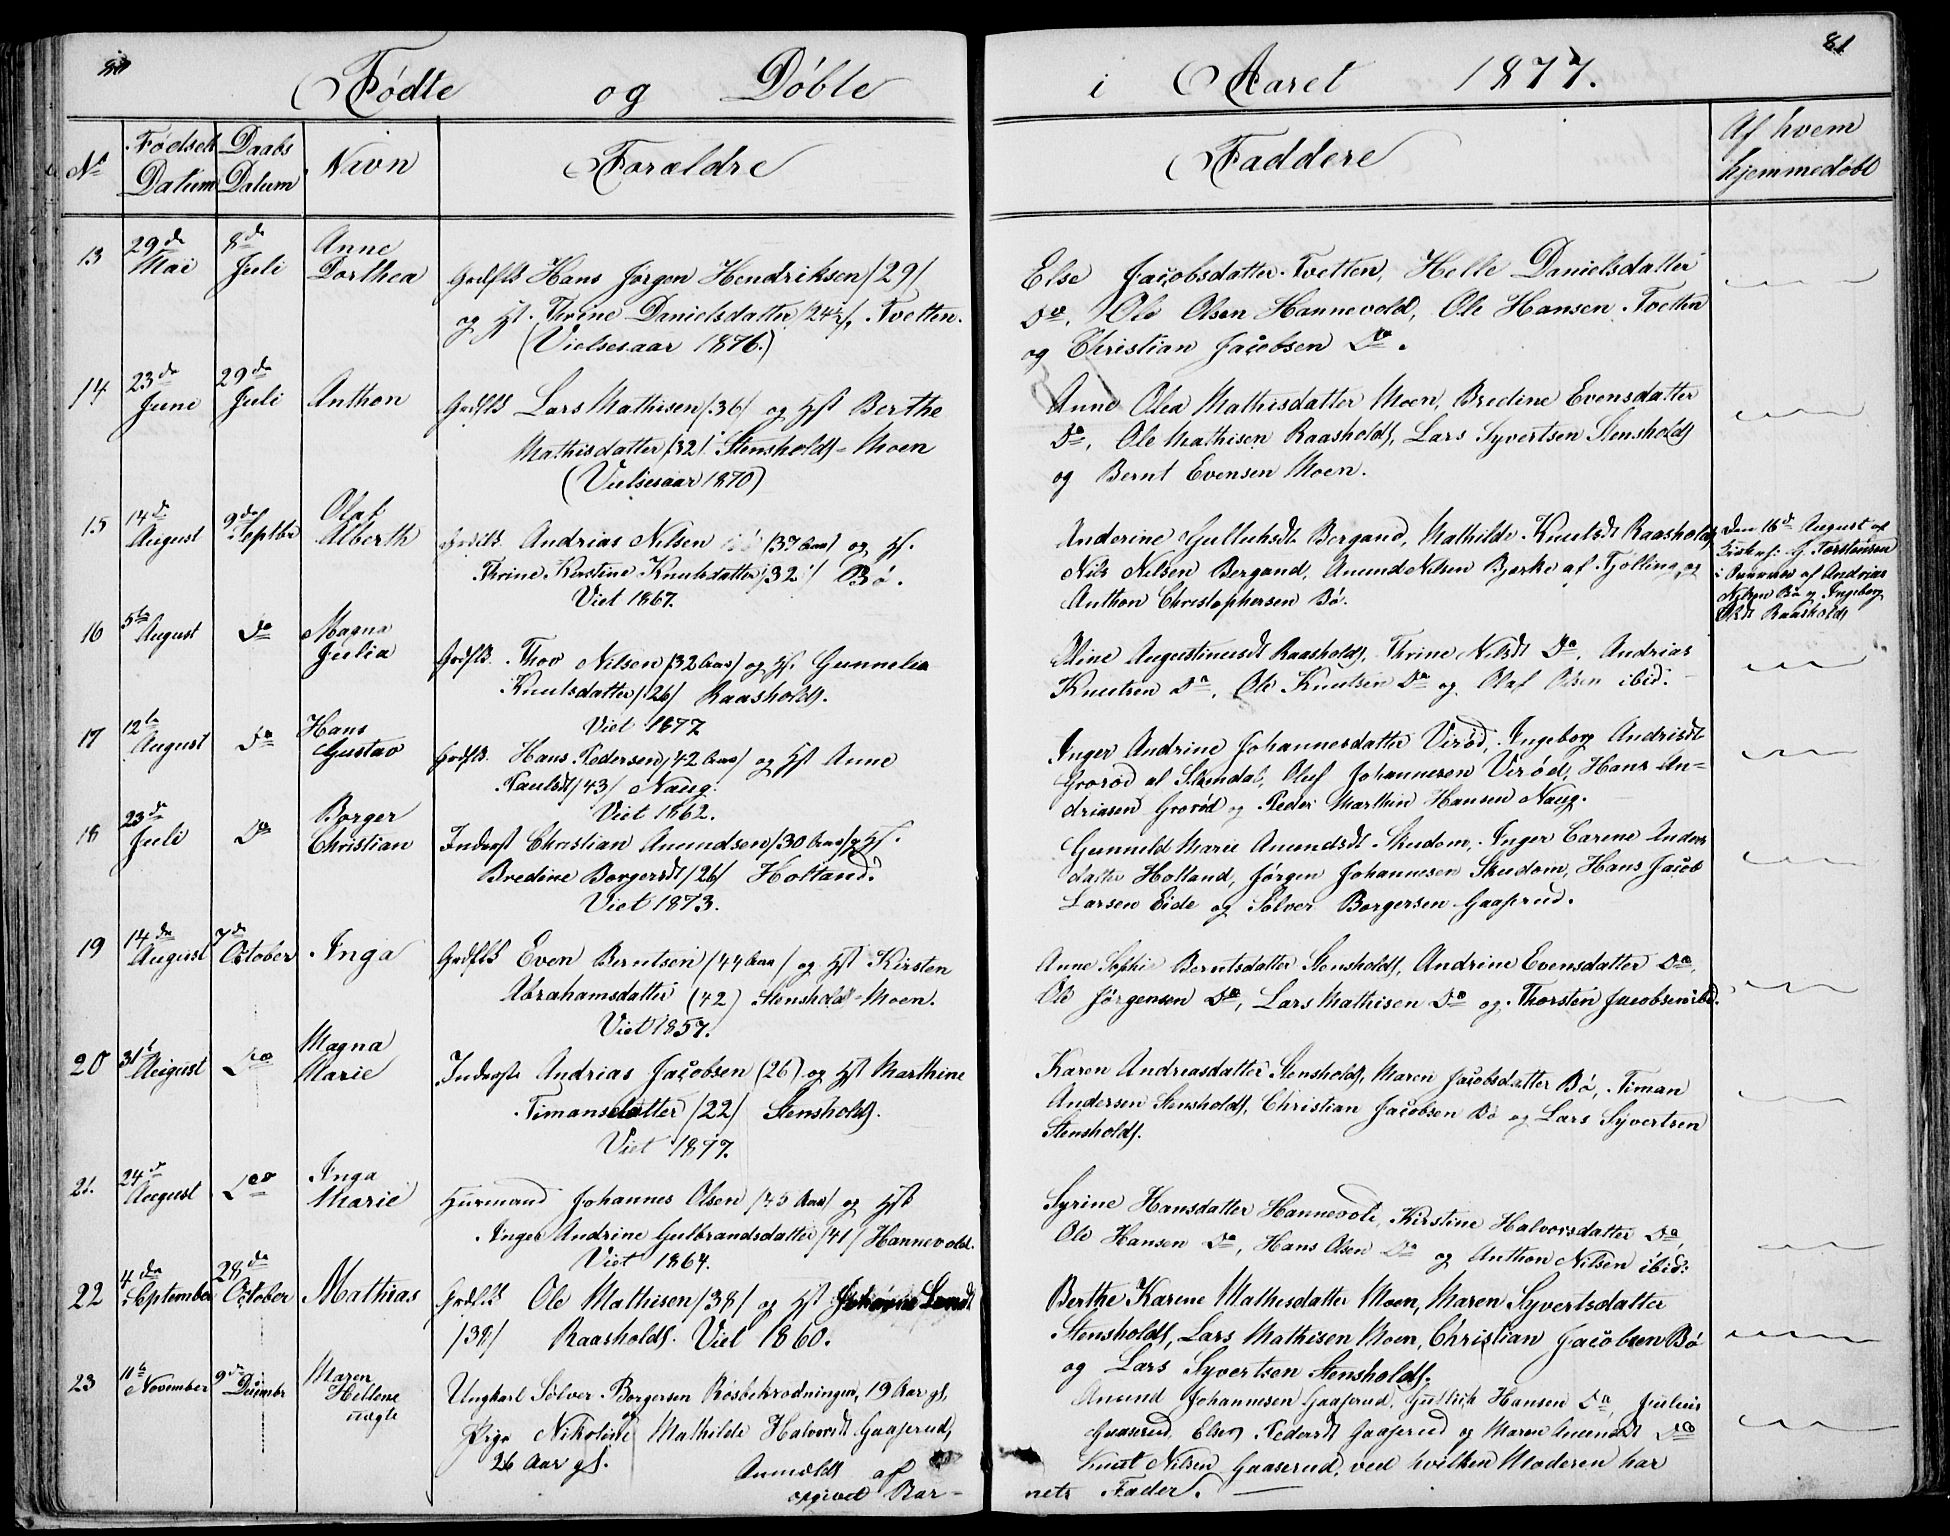 80
Fødte og Døbte
Nr.
Fødsels Datum
Daabs Datum
Navn
Forældre
13
29de Mai
8de Juli
Anne Dorthea
Grdflk Hans Jörgen Hendriksen /29/
og Hst. Thrine Danielsdatter /24½/, Tvetten.
(Vielsesaar 1876.)
14
23de Juni
29de Juli
Anthon
Grdflk Lars Mathisen /36/ og Hst Berthe
Mathisdatter /32/ Stensholdt-Moen
(Vielsesaar 1870)
15
14de August
9de Septbr
Olaf Alberth
Andrias Nilsen /37 Aar/ og H.
Thrine Kirstine Knutsdatter /32/ Bö.
Viet 1867.
16
5te August
Do
Magna Julia
Grdflk. Thov Nilsen /32 Aar/ og H. Gunnelia
Knutsdatter /26/ Raasholdt.
Viet 1877
17
12te August
Do
Hans Gustav
Grdflk. Hans Pedersen /42 Aar/ og Hst Anne
Paulsdt /43/ Naug.
Viet 1862.
18
23de Juli
Do
Borger Christian
Inderst Christian Anundsen /30 Aar/ og H.
Bredine Borgersdt /26/ Holtand.
Viet 1873.
19
14de August
7de October
Inga
Grdflk Even Berntsen /44 Aar/ og Hst Kirsten
Abrahamsdatter (42) Stensholdt-Moen.
Viet 1857.
20
31te August
Do
Magna Marie
Inderste Andrias Jacobsen (26) og Hst Marthine
Timansdatter /22/ Stensholdt.
Viet 1877.
21.
24de August
Do
Inga Marie
Huusmand Johannes Olsen /45 Aar/ og Hst
Inger Andrine Gulbrandsdatter /41/ Hannevold.
Viet 1864.
22
4de September
28de October
Mathias
Grdflk Ole Mathisen /38/ og Hst
/38/ Raasholdt. Viet 1860.
23
11te November
9de Decembr
Maren Hellene uægte
Ungkarl Sölver Borgersen Rösbekrödningen, 19 Aar gl.
og
Pige Nikoline Mathilde Halvorsdt Gaaserud,
26 Aar gl.
Anmeldt af
opgivet Bar-
81
i Aaret 1877.
Faddere
Af hvem hjemmedøbt
Else Jacobsdatter Tvetten, Helle Danielsdatter
Do, Ole Olsen Hannevold, Ole Hansen Tvetten
og Christian Jacobsen Do.
Anne Olea Mathisdatter Moen, Bredine Evensdatter
Do, Ole Mathisen Raasholdt, Lars Syvertsen Stensholdt
og Bernt Evensen Moen.
Anderine Gulluksdt Bergand, Mathilde Knutsdt Raasholdt
Nils Nilsen Bergand, Anund Nilsen Bjerke af Tjölling og
Anthon Christophersen Bö.
Den 16de August af
G. Torstensen
i Nærvær af Andrias
Nilsen Bö og Ingeborg
Olsdt Raasholdt
Aline Augustinusdt Raasholdt, Thrine Nilsdt Do, Andrias
Knutsen Do, Ole Knutsen Do og Olaf Olsen ibid.
Inger Andrine Johannesdatter Viröd, Ingeborg Andrisdt
Groröd af Slemdal, Oluf Johannesen Viröd, Hans An-
driasen Groröd og Peder Marthin Hansen Naug.
Gunnild Marie Anundsdt Skudom, Inger Carine Anders
datter Holland, Jörgen Johannesen Skudom, Hans Jacob
Larsen Eide og Sölver Borgersen Gaaserud.
Anne Sophie Berntsdatter Stensholdt, Andrine Evensdatter Do,
Ole Jörgensen Do, Lars Mathisen Do og Thorsten Jacobsen ibd.
Karen Andreasdatter Stensholdt, Maren Jacobsdatter Bö, Timan
Andersen Stensholdt, Christian Jacobsen Bö og Lars Syvertsen
Stensholdt.
Syrine Hansdatter Hannevold, Kirstine Halvorsdatter Do,
Ole Hansen Do, Hans Olsen Do og Anthon Nilsen ibid.
Berthe Karine Mathisdatter Moen, Maren Syvertsdatter
Stensholdt, Lars Mathisen Moen, Christian Jacobsen Bö
og Lars Syvertsen Stensholdt.
Anund Johannesen Gaaserud, Gulluk Hansen Do, Julius
Gaaserud, Else Pedersdt Gaaserud og Maren Anundsdt Do
Knut Nilsen Gaaserud, ved hvilken Moderen har
nets Fader.